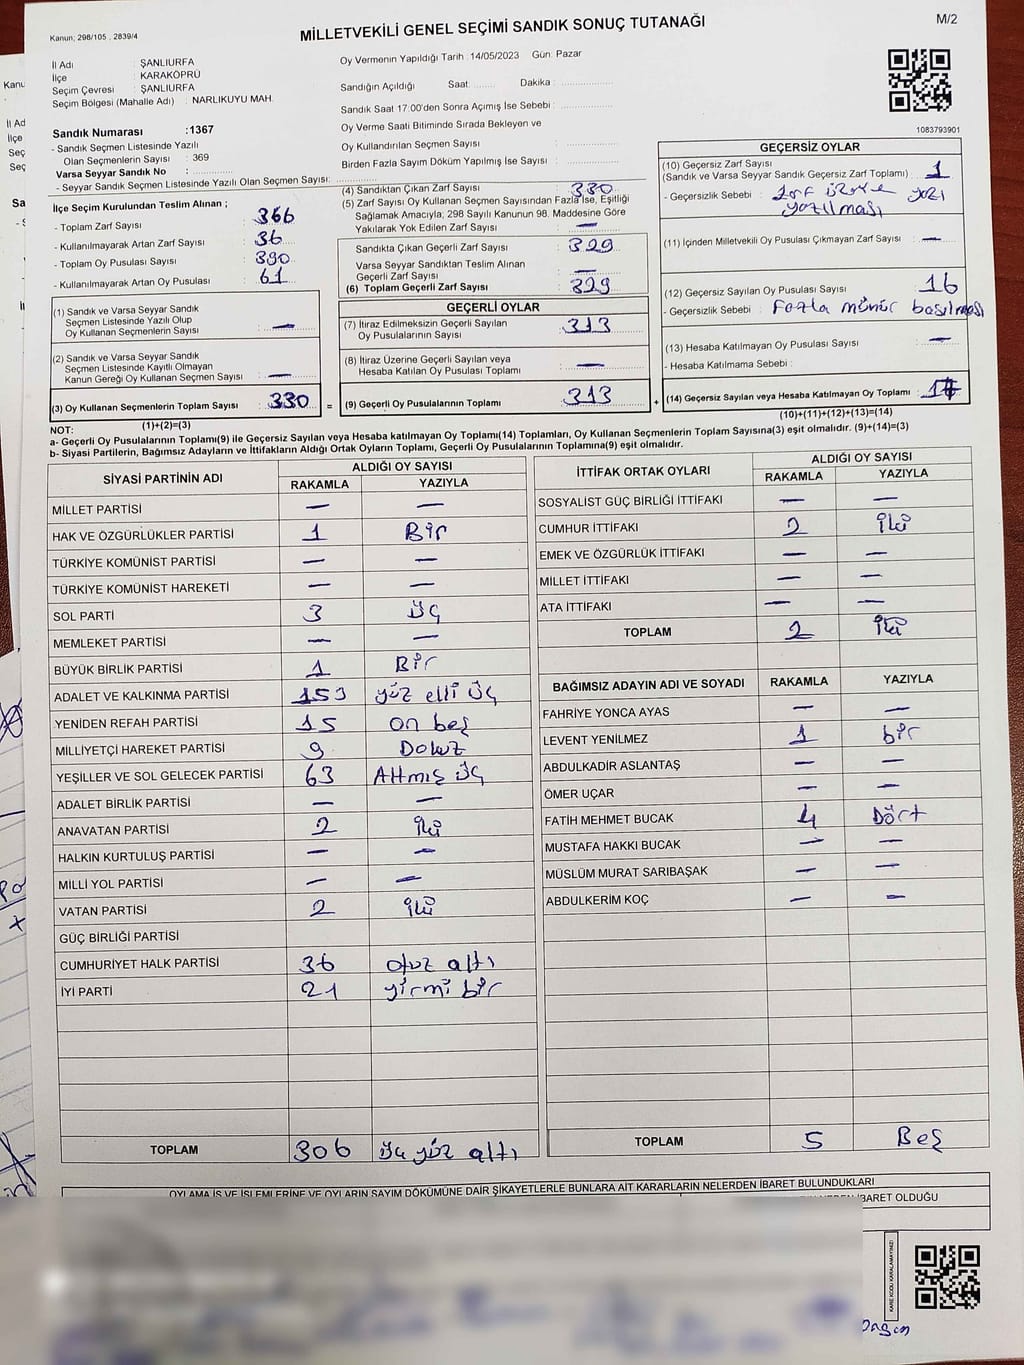 Kanun; 298/105 , 2839/4
MİLLETVEKİLİ GENEL SEÇİMİ SANDIK SONUÇ TUTANAĞI
M/2
İl Adı : ŞANLIURFA
İlçe : KARAKÖPRÜ
Seçim Çevresi : ŞANLIURFA
Seçim Bölgesi (Mahalle Adı) : NARLIKUYU MAH.
Oy Vermenin Yapıldığı Tarih : 14/05/2023 Gün: Pazar
Sandığın Açıldığı Saat: ........ Dakika : ............
Sandık Saat 17:00'den Sonra Açımış İse Sebebi : ................
Oy Verme Saati Bitiminde Sırada Bekleyen ve
Oy Kullandırılan Seçmen Sayısı : ................
Birden Fazla Sayım Döküm Yapılmış İse Sayısı : ................
1083793901
Sandık Numarası : 1367
- Sandık Seçmen Listesinde Yazılı
Olan Seçmenlerin Sayısı : 369
Varsa Seyyar Sandık No : ................
- Seyyar Sandık Seçmen Listesinde Yazılı Olan Seçmen Sayısı: ................
İlçe Seçim Kurulundan Teslim Alınan ;
- Toplam Zarf Sayısı : 366
- Kullanılmayarak Artan Zarf Sayısı : 36
- Toplam Oy Pusulası Sayısı : 390
- Kullanılmayarak Artan Oy Pusulası : 61
(1) Sandık ve Varsa Seyyar Sandık
Seçmen Listesinde Yazılı Olup
Oy Kullanan Seçmenlerin Sayısı : —
(2) Sandık ve Varsa Seyyar Sandık
Seçmen Listesinde Kayıtlı Olmayan
Kanun Gereği Oy Kullanan Seçmen Sayısı : —
(3) Oy Kullanan Seçmenlerin Toplam Sayısı : 330
(1)+(2)=(3)
(4) Sandıktan Çıkan Zarf Sayısı : 330
(5) Zarf Sayısı Oy Kullanan Seçmen Sayısından Fazla İse, Eşitliği
Sağlamak Amacıyla; 298 Sayılı Kanunun 98. Maddesine Göre
Yakılarak Yok Edilen Zarf Sayısı : —
Sandıkta Çıkan Geçerli Zarf Sayısı : 329
Varsa Seyyar Sandıktan Teslim Alınan
Geçerli Zarf Sayısı : —
(6) Toplam Geçerli Zarf Sayısı : 329
GEÇERLİ OYLAR
(7) İtiraz Edilmeksizin Geçerli Sayılan
Oy Pusulalarının Sayısı : 313
(8) İtiraz Üzerine Geçerli Sayılan veya
Hesaba Katılan Oy Pusulası Toplamı : —
= (9) Geçerli Oy Pusulalarının Toplamı : 313
GEÇERSİZ OYLAR
(10) Geçersiz Zarf Sayısı
(Sandık ve Varsa Seyyar Sandık Geçersiz Zarf Toplamı) : 1
- Geçersizlik Sebebi : Zarf üzerine yazı
yazılması
(11) İçinden Milletvekili Oy Pusulası Çıkmayan Zarf Sayısı : —
(12) Geçersiz Sayılan Oy Pusulası Sayısı : 16
- Geçersizlik Sebebi : Fazla mühür basılması
(13) Hesaba Katılmayan Oy Pusulası Sayısı : —
- Hesaba Katılmama Sebebi :
+ (14) Geçersiz Sayılan veya Hesaba Katılmayan Oy Toplamı : 17
(10)+(11)+(12)+(13)=(14)
NOT:
a- Geçerli Oy Pusulalarının Toplamı(9) ile Geçersiz Sayılan veya Hesaba katılmayan Oy Toplamı(14) Toplamları, Oy Kullanan Seçmenlerin Toplam Sayısına(3) eşit olmalıdır. (9)+(14)=(3)
b- Siyasi Partilerin, Bağımsız Adayların ve İttifakların Aldığı Ortak Oyların Toplamı, Geçerli Oy Pusulalarının Toplamına(9) eşit olmalıdır.
SİYASİ PARTİNİN ADI ALDIĞI OY SAYISI
RAKAMLA YAZIYLA
MİLLET PARTİSİ — —
HAK VE ÖZGÜRLÜKLER PARTİSİ 1 Bir
TÜRKİYE KOMÜNİST PARTİSİ — —
TÜRKİYE KOMÜNİST HAREKETİ — —
SOL PARTİ 3 üç
MEMLEKET PARTİSİ — —
BÜYÜK BİRLİK PARTİSİ 1 Bir
ADALET VE KALKINMA PARTİSİ 153 yüz elli üç
YENİDEN REFAH PARTİSİ 15 on beş
MİLLİYETÇİ HAREKET PARTİSİ 9 Dokuz
YEŞİLLER VE SOL GELECEK PARTİSİ 63 Altmış üç
ADALET BİRLİK PARTİSİ — —
ANAVATAN PARTİSİ 2 iki
HALKIN KURTULUŞ PARTİSİ — —
MİLLİ YOL PARTİSİ — —
VATAN PARTİSİ 2 iki
GÜÇ BİRLİĞİ PARTİSİ
CUMHURİYET HALK PARTİSİ 36 otuz altı
İYİ PARTİ 21 yirmi bir
TOPLAM 306 üç yüz altı
İTTİFAK ORTAK OYLARI ALDIĞI OY SAYISI
RAKAMLA YAZIYLA
SOSYALİST GÜÇ BİRLİĞİ İTTİFAKI — —
CUMHUR İTTİFAKI 2 iki
EMEK VE ÖZGÜRLÜK İTTİFAKI — —
MİLLET İTTİFAKI — —
ATA İTTİFAKI — —
TOPLAM 2 iki
BAĞIMSIZ ADAYIN ADI VE SOYADI RAKAMLA YAZIYLA
FAHRİYE YONCA AYAS — —
LEVENT YENİLMEZ 1 bir
ABDULKADİR ASLANTAŞ — —
ÖMER UÇAR — —
FATİH MEHMET BUCAK 4 Dört
MUSTAFA HAKKI BUCAK — —
MÜSLÜM MURAT SARIBAŞAK — —
ABDULKERİM KOÇ — —
TOPLAM 5 Beş
OYLAMA İŞ VE İŞLEMLERİNE VE OYLARIN SAYIM DÖKÜMÜNE DAİR ŞİKAYETLERLE BUNLARA AİT KARARLARIN NELERDEN İBARET BULUNDUKLARI
İBARET OLDUĞU
KARE KODU KARALAMAYINIZ!